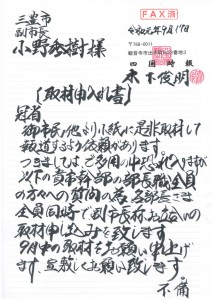 FAX済
三豊市
副市長
小野 英樹様
令和元年9月17日
〒768-0011
四国時報
木下俊明
【取材申入れ書】
冠省
御市民他より小紙に是非取材して
報道するよう依頼があります。
つきましては、ご多用の中恐れ入りますが
以下の貴市幹部の部長職全員
の方々への質問の為、各部長さま
全員同時で副市長様お立会いの
取材申し込みを致します。
9月末の取材をお願い申し上げ
ます、宜敷くお願い致します。
不備